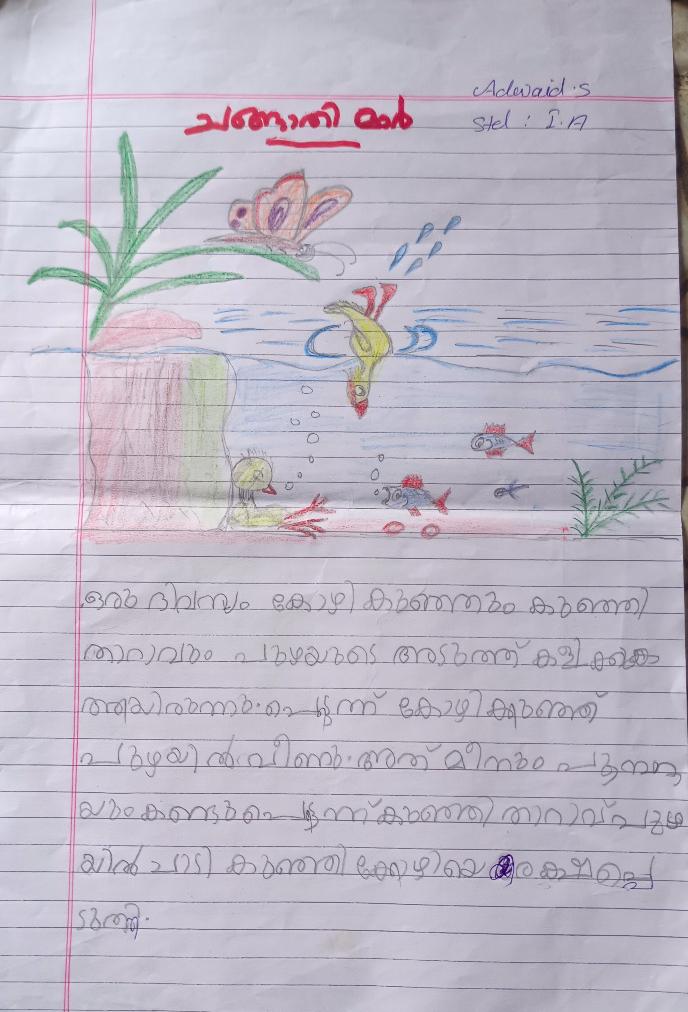 Adwaid.S
ചങ്ങാതി മാർ
Std : I.A
ഒരു ദിവസം കോഴി കുഞ്ഞും കുഞ്ഞി
താറാവും പുഴയുടെ അടുത്ത് കളി ക്കുക
ആയിരുന്നു.പെട്ടന്ന് കോഴികുഞ്ഞ്
പുഴയിൽ വീണു.അത് മീനും പൂമ്പാറ്റ
യും കണ്ടു പെട്ടന്ന് കുഞ്ഞി താറാവ് പുഴ
യിൽ ചാടി കുഞ്ഞി കോഴിയെ രക്ഷപ്പെ
ടുത്തി.